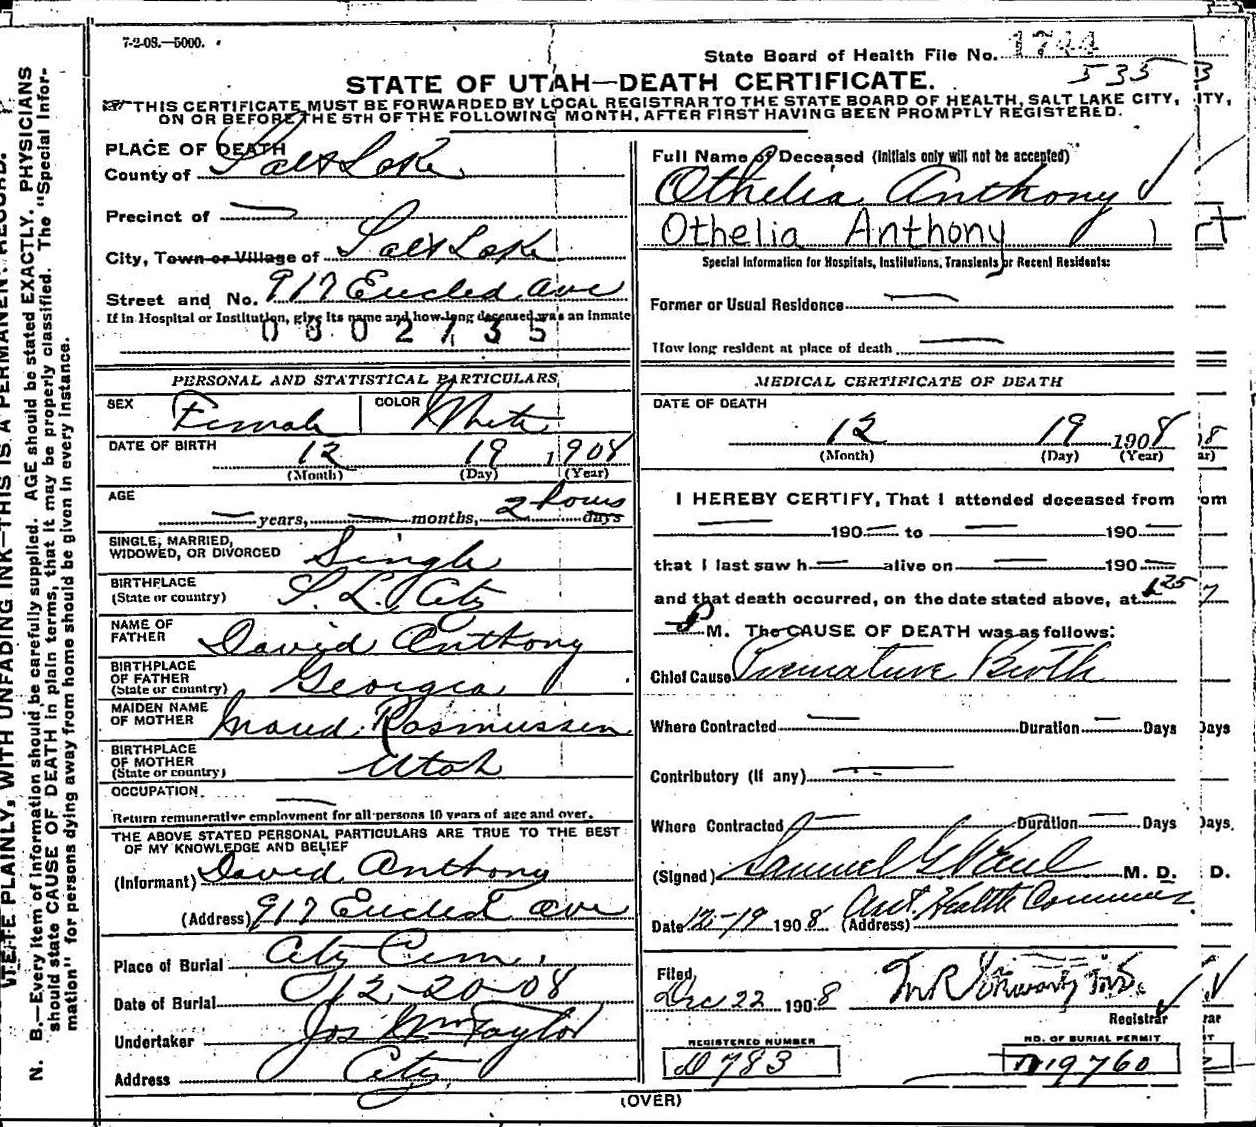 7-2-08.—5000.
State Board of Health File No. 1744
535
STATE OF UTAH—DEATH CERTIFICATE.
THIS CERTIFICATE MUST BE FORWARDED BY LOCAL REGISTRAR TO THE STATE BOARD OF HEALTH, SALT LAKE CITY,
ON OR BEFORE THE 5TH OF THE FOLLOWING MONTH, AFTER FIRST HAVING BEEN PROMPTLY REGISTERED.
PLACE OF DEATH
County of Salt Lake
Precinct of —
City, Town or Village of Salt Lake
Street and No. 917 Euclid Ave
If in Hospital or Institution, give its name and how long deceased was an inmate
0802735
Full Name of Deceased (Initials only will not be accepted)
Othelia Anthony
Othelia Anthony
Special Information for Hospitals, Institutions, Transients or Recent Residents:
Former or Usual Residence —
How long resident at place of death —
PERSONAL AND STATISTICAL PARTICULARS
SEX Female COLOR White
DATE OF BIRTH 12 19 1908
(Month) (Day) (Year)
AGE — years, — months, 2 hours days
SINGLE, MARRIED,
WIDOWED, OR DIVORCED Single
BIRTHPLACE
(State or country) S. L. City
NAME OF
FATHER David Anthony
BIRTHPLACE
OF FATHER
(State or country) Georgia
MAIDEN NAME
OF MOTHER Maud Rasmussen
BIRTHPLACE
OF MOTHER
(State or country) Utah
OCCUPATION —
Return remunerative employment for all persons 10 years of age and over.
THE ABOVE STATED PERSONAL PARTICULARS ARE TRUE TO THE BEST
OF MY KNOWLEDGE AND BELIEF
(Informant) David Anthony
(Address) 917 Euclid Ave
Place of Burial City Cem.
Date of Burial 12-20-08
Undertaker Jos Wm Taylor
Address City
MEDICAL CERTIFICATE OF DEATH
DATE OF DEATH
12 19 1908
(Month) (Day) (Year)
I HEREBY CERTIFY, That I attended deceased from
— 190— to — 190—
that I last saw h— alive on — 190—
and that death occurred, on the date stated above, at 1 25
P M. The CAUSE OF DEATH was as follows:
Chief Cause Premature Birth
Where Contracted — Duration — Days
Contributory (If any) —
Where Contracted — Duration — Days
(Signed) Samuel G. Paul M. D.
Date 12-19 1908 (Address) Asst. Health Commis
Filed,
Dec 22 1908
Registrar
REGISTERED NUMBER
D 783
NO. OF BURIAL PERMIT
19760
(OVER)
WRITE PLAINLY, WITH UNFADING INK—THIS IS A PERMANENT RECORD.
N. B.—Every item of information should be carefully supplied. AGE should be stated EXACTLY. PHYSICIANS
should state CAUSE OF DEATH in plain terms, that it may be properly classified. The "Special Infor-
mation" for persons dying away from home should be given in every instance.